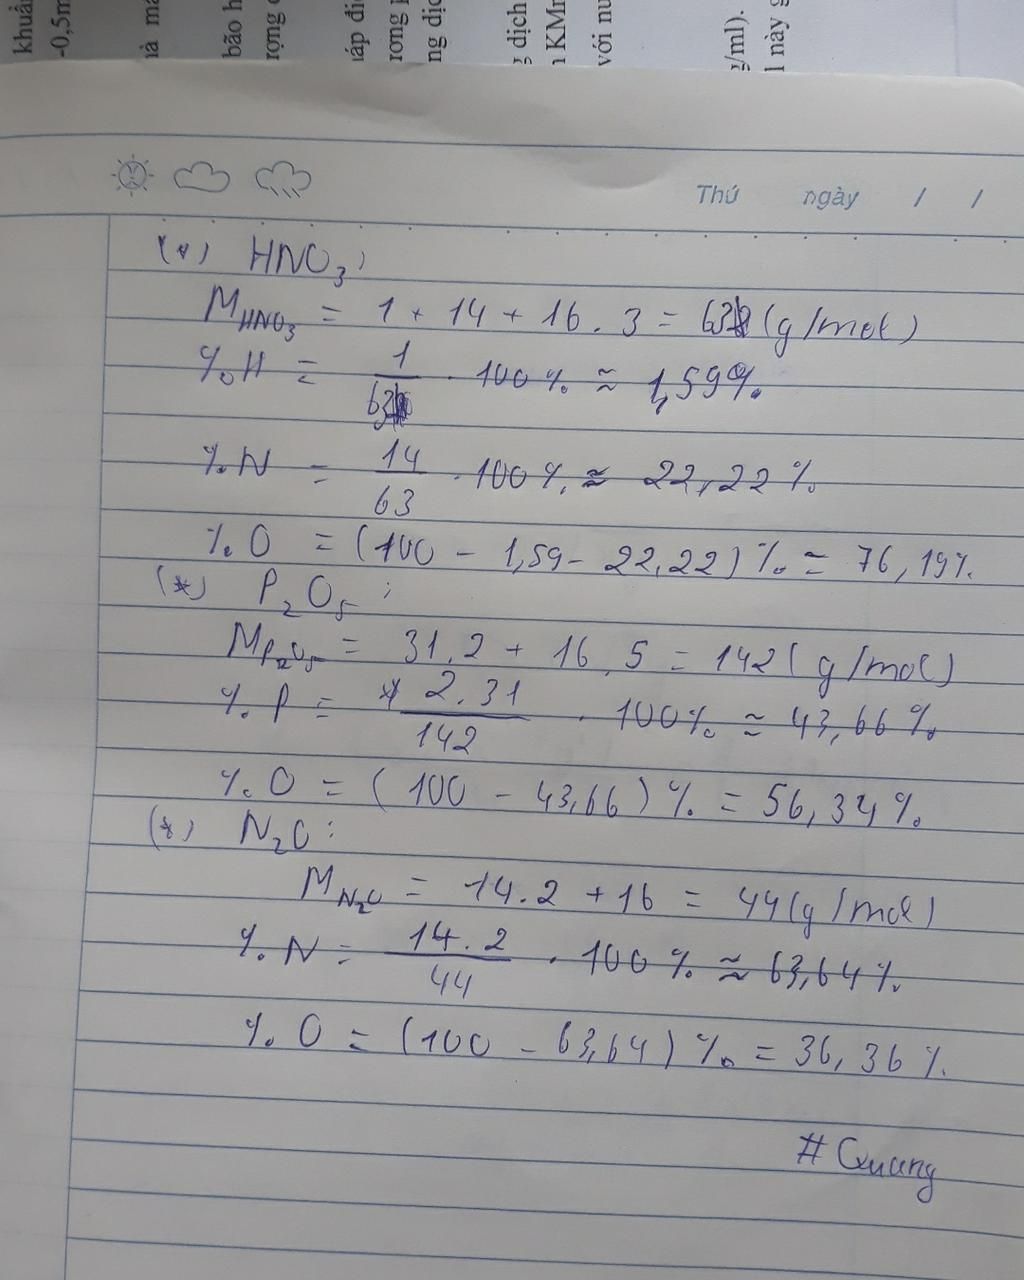 khuẩn
-0,5m
là má
bão h
rợng c
áp di
rơng p
ng dịc
g dịch
n KMn
với nu
g/ml).
l này g
Thứ ngày / /
(*) HNO₃:
M_HNO₃ = 1 + 14 + 16 . 3 = 63 (g/mol)
%H = 1/63 . 100% ≈ 1,59%.
%N = 14/63 . 100% ≈ 22,22%.
%O = (100 - 1,59 - 22,22)% = 76,19%.
(*) P₂O₅:
M_P₂O₅ = 31.2 + 16.5 = 142 (g/mol)
%P = 2.31/142 . 100% ≈ 43,66%.
%O = (100 - 43,66)% = 56,34%.
(*) N₂O:
M_N₂O = 14.2 + 16 = 44 (g/mol)
%N = 14.2/44 . 100% ≈ 63,64%.
%O = (100 - 63,64)% = 36,36%.
# Quang